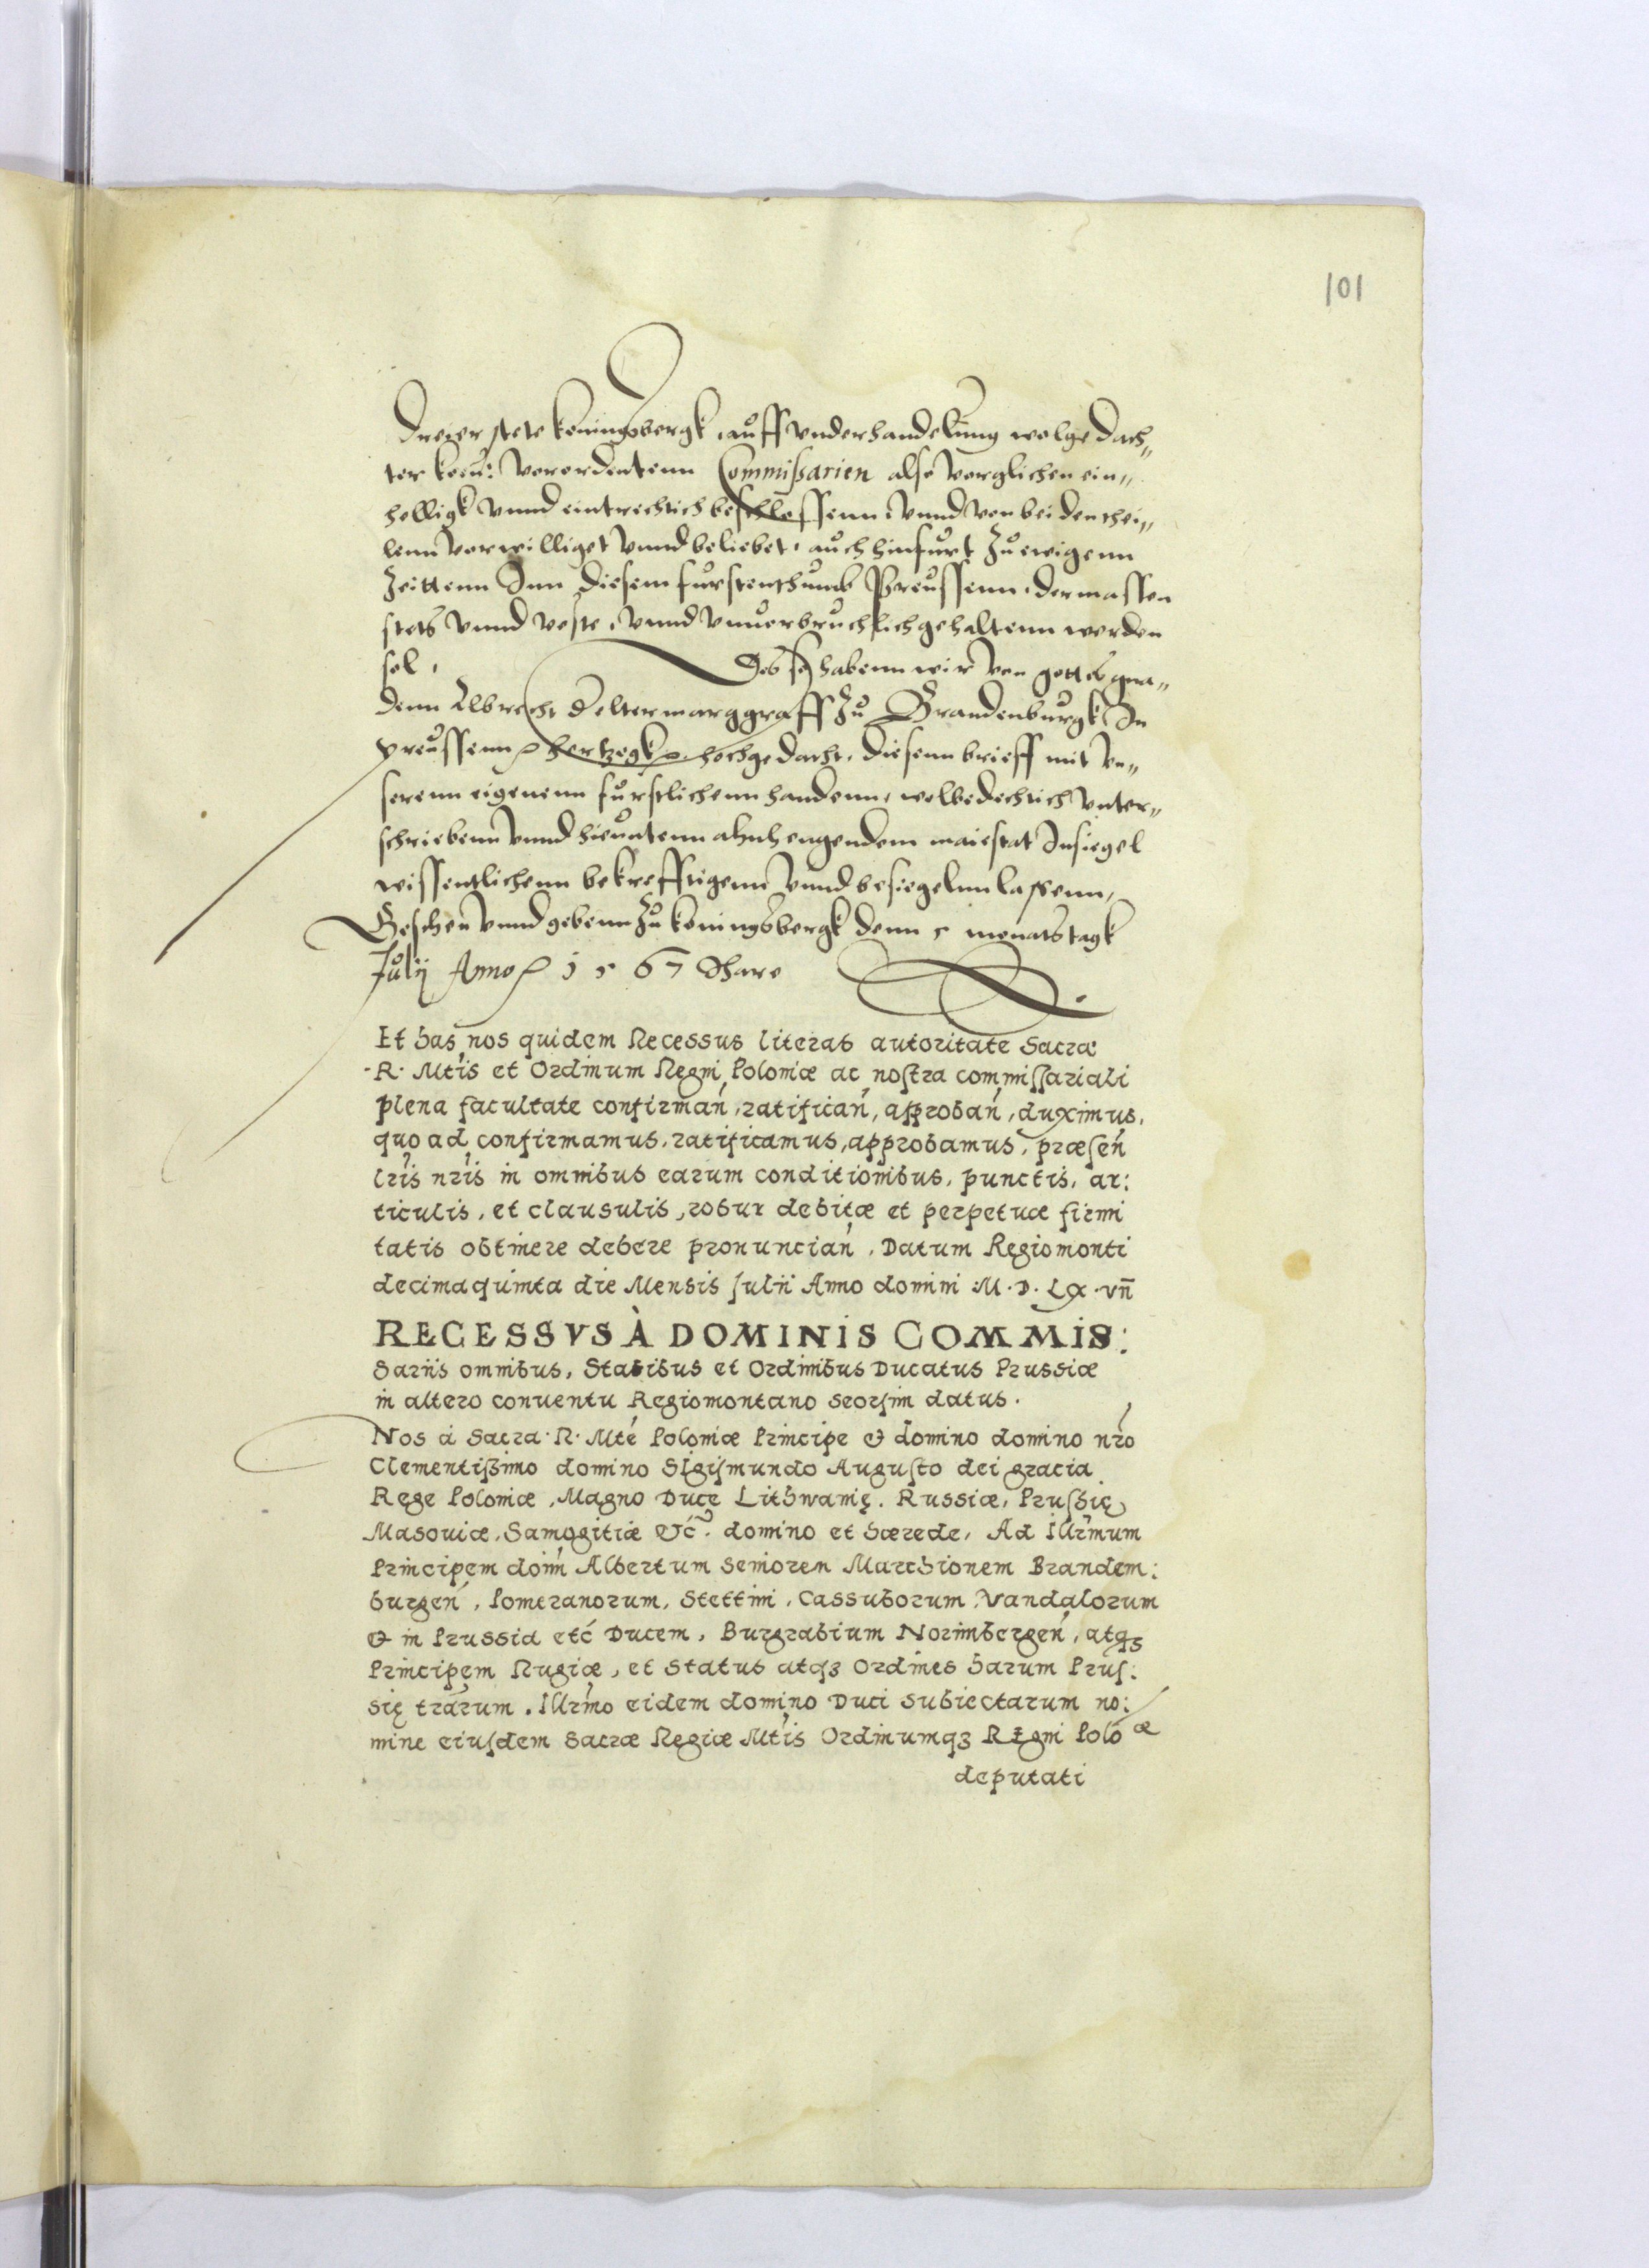 101
Dreyer stete koningsbergk, auff vnderhandelung wolgedach„
ter kon: verordentenn Commißarien also verglichen ein„
helligk vnnd eintrechtich beschlossenn, vnnd von beiden thei„
lenn verwilliget vnnd beliebet, auch hinfurt zu ewigenn
Zeittenn Inn diesem furstenthumb Preussenn, dermassen
stets vnnd veste, vnnd vnuerbruchlich gehaltenn werden
sol, Des habenn wir von gottes gna„
denn Albrecht d elter marggraff zu Brandenburgk In
preussenn hertzogk hochgedacht, diesenn brieff mit vn„
serenn eigenenn furstlichenn handenn, wolbedechtich vnter„
schriebenn vnnd hieuntenn ahnhengendem maiestat Insiegel
wissentlichenn bekrefftigenn vnnd besiegelnn lassenn,
Geschen vnnd gebenn zu koningsbergk denn 5 monatstagk
Julij Anno 1567 Jhare
Et has nos quidem Recessus literas autoritate Sacræ
·R· Mtis et Ordinum Regni Poloniæ ac nostra commissariali
plena facultate confirmań, ratificań, approbań, duximus,
quo ad confirmamus, ratificamus, approbamus, præseń
lris nris in omnibus earum conditionibus, punctis, ar:
ticulis, et clausulis, robur debitæ et perpetuæ firmi
tatis obtinere debere pronunciań, Datum Regiomonti
decimaquinta die Mensis Julii Anno domini M·D·LX·vii
RECESSVS À DOMINIS COMMIS:
Sariis omnibus, Statibus et Ordinibus Ducatus Prussiæ
in altero conuentu Regiomontano seorsim datus.
Nos à Sacra·R·Mté Poloniæ Principe & domino domino nro
Clementißimo domino Sigismundo Augusto dei gracia
Rege Poloniæ, Magno Duce Lithwanię, Russiæ, Prussię
Masouiæ, Samogitiæ &c. domino et hærede, Ad Illrmum
Principem dom̄ Albertum Seniorem Marchionem Brandem:
burgeń, Pomeranorum, Stettini, Cassuborum, Vandalorum
& in Prussia etć Ducem, Burgrabium Norimbergeń, atq3
Principem Rugiæ, et Status atq3 Ordines harum Prus:
się trarum, Illrmo eidem domino Duci subiectarum no:
mine eiusdem Sacræ Regiæ Mtis Ordinumq3 Regni Poloæ
deputati